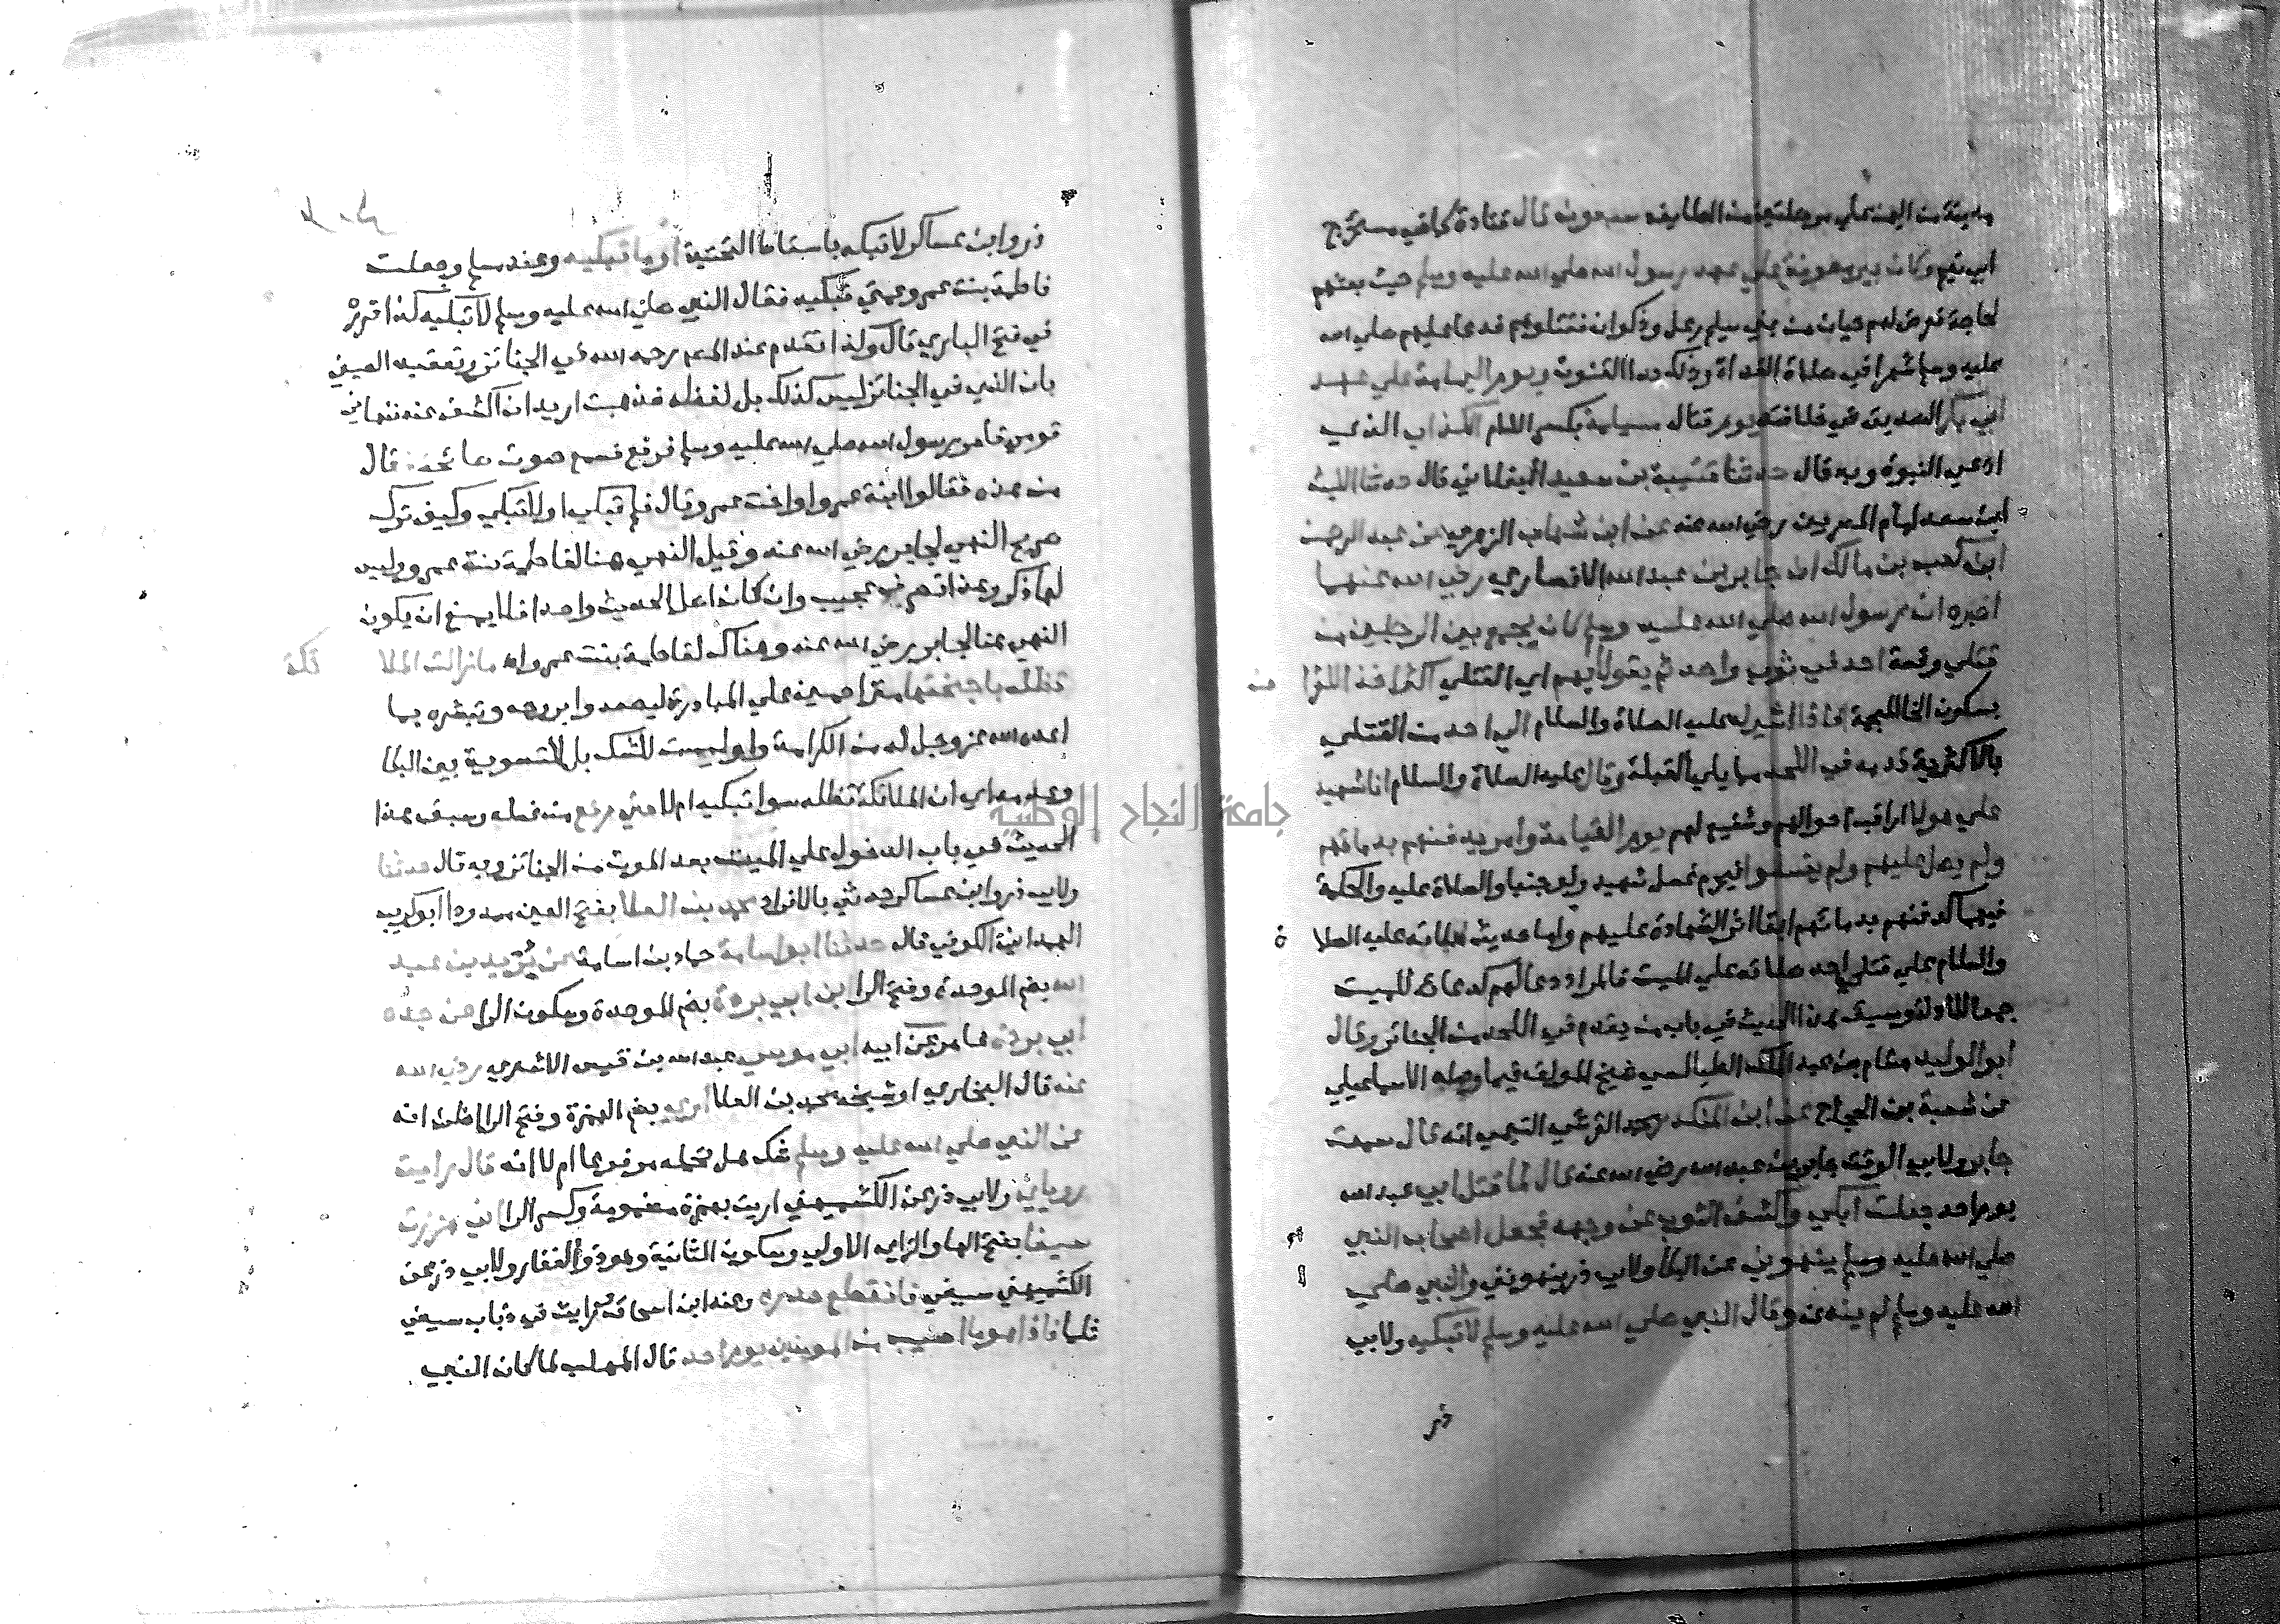 مدينة من اليمن علي مرحلتين من الطايف سبعون قال قتادة كما في مستخرج
ابي نعيم وكان بير معونة علي عهد رسول الله صلي الله عليه وسلم حيث بعثهم
لحاجة فعرض لهم حيان من بني سليم رعل وذكوان فقتلوهم فدعا عليهم صلي الله
عليه وسلم شهرا في صلاة الغداة وذلك بدا القنوت ويوم اليمامة علي عهد
ابي بكر الصديق في خلافته يوم قتال مسيلمة بكسر اللام الكذاب الذي
ادعي النبوة وبه قال حدثنا قتيبة بن سعيد البغلاني قال حدثنا الليث
ابن سعد امام المصريين رضي الله عنه عن ابن شهاب الزهري عن عبد الرحمن
ابن كعب بن مالك ان جابر بن عبد الله الانصاري رضي الله عنهما
اخبره ان رسول الله صلي الله عليه وسلم كان يجمع بين الرجلين من
قتلي وقعة احد في ثوب واحد ثم يقول ايهم اي القتلي اكثر اخذا للقرا
بسكون الخا المعجمة فاذا اشير له عليه الصلاة والسلام الي احد من القتلي
بالاكثرية قدمه في اللحد مما يلي القبلة وقال عليه الصلاة والسلام انا شهيد
علي هولا اراقب احوالهم وشفيع لهم يوم القيامة وامر بدفنهم بدمائهم
ولم يصل عليهم ولم يغسلوا فيحرم غسل شهيد ولو جنبا والصلاة عليه والحكمة
فيهما كدفنهم بدمائهم ابقا اثر الشهادة عليهم واما حديث صلاته عليه الصلا ة
والسلام علي قتلي احد صلاته علي الميت فالمراد دعا لهم كدعائه للميت
جمعا للادلة وسبق هذا الحديث في باب من يقدم في اللحد من الجنائز وقال
ابو الوليد هشام بن عبد الملك الطيالسي شيخ المولف فيما وصله الاسماعيلي
عن شعبة بن الحجاج عن ابن المنكدر محمد القرشي التيمي انه قال سمعت
جابر ولابي الوقت جابر بن عبد الله رضي الله عنه قال لما قتل ابي عبد الله
يوم احد جعلت ابكي واكشف الثوب عن وجهه فجعل اصحاب النبي
صلي الله عليه وسلم ينهوني عن البكا ولابي ذر ينهونني والنبي صلي
الله عليه وسلم لم ينه عن وقال النبي صلي الله عليه وسلم لا تبكيه ولابي
ذر
ذر وابن عساكر لا تبكه باسقاط التحتية او ما تبكيه وعند مسلم وجعلت
فاطمة بنت عمرو عمتي تبكيه فقال النبي صلي الله عليه وسلم لا تبكيه كذا قرره
في فتح الباري قال وكذا تقدم عند المص رحمه الله في الجنائز وتعقبه العيني
بان الذي في الجنائز ليس كذلك بل لفظه فذهبت اريد ان اكشف عنه فنهاني
قومي فامر رسول الله صلي الله عليه وسلم فرفع فسمع صوت صائحة قال
من هذه فقالوا ابنة عمرو او اخت عمرو قال فلم تبكي او لا تبكي وكيف ترك
صريح النهي لجابر رضي الله عنه وقيل النهي هنا لفاطمة بنت عمرو وليس
لها ذكر وعند اتهم في عجيب وان كان اصل الحديث واحدا فلا يمنع ان يكون
النهي هنا لجابر رضي الله عنه وهناك لفاطمة بنت عمرو اه ما زالت الملا ئكة
تظله باجنحتها متزاحمين علي المبادرة ليصعدوا بروحه وتبشره بما
اعده الله عز وجل له من الكرامة واو ليست للشك بل للتسوية بين البكا
وعدمه اي ان الملائكة تظله سوا تبكيه ام لا حتي رفع من غسله وسبق هذا
الحديث في باب الدخول علي الميت بعد الموت من الجنائز وبه قال حدثنا
ولابي ذر وابن عساكر حدثني بالافراد محمد بن العلا بفتح العين ممدودا ابو كريب
الهمداني الكوفي قال حدثنا ابو اسامة حماد بن اسامة عن بريد بن عبد
الله بضم الموحدة وفتح الرا بن ابي بردة بضم الموحدة وسكون الرا عن جده
ابي بردة عامر عن ابيه ابي موسي عبد الله بن قيس الاشعري رضي الله
عنه قال البخاري او شيخه محمد بن العلا اري بضم الهمزة وفتح الرا اظن انه
عن النبي صلي الله عليه وسلم شك هل تحمله مرفوعا ام لا انه قال رايت
روياي ولابي ذر عن الكشميهني اريت بهمزة مضمومة وكسر الرا اني هززت
سيفا بفتح الها والزاي الاولي وسكون الثانية وهو ذو الفقار ولابي ذر عن
الكشميهني سيفي فانقطع صدره وعند ابن اسحاق رايت في ذباب سيفي
ثلما فاذا هو ما اصيب من المومنين يوم احد قال المهلب لما كان النبي
جامعة النجاح الوطنية